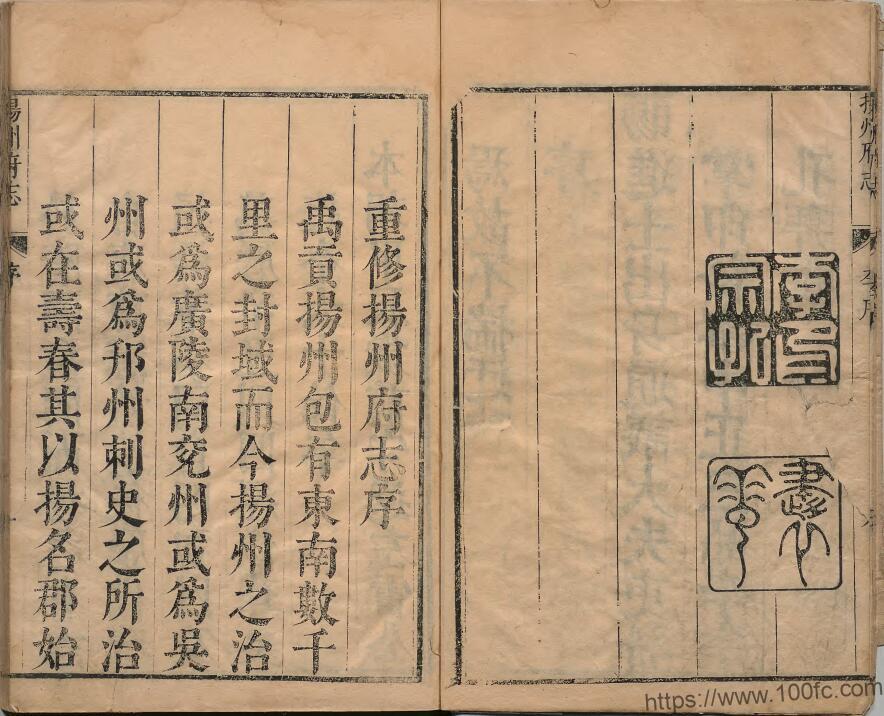 揚州府志
李印
宗孔
重修揚州府志序
禹貢揚州包有東南數千
里之封域而今揚州之治
或爲廣陵南兗州或爲吳
州或爲邗州刺史之所治
或在壽春其以揚名郡始
揚州府志 序 一
https://www.100fc.com